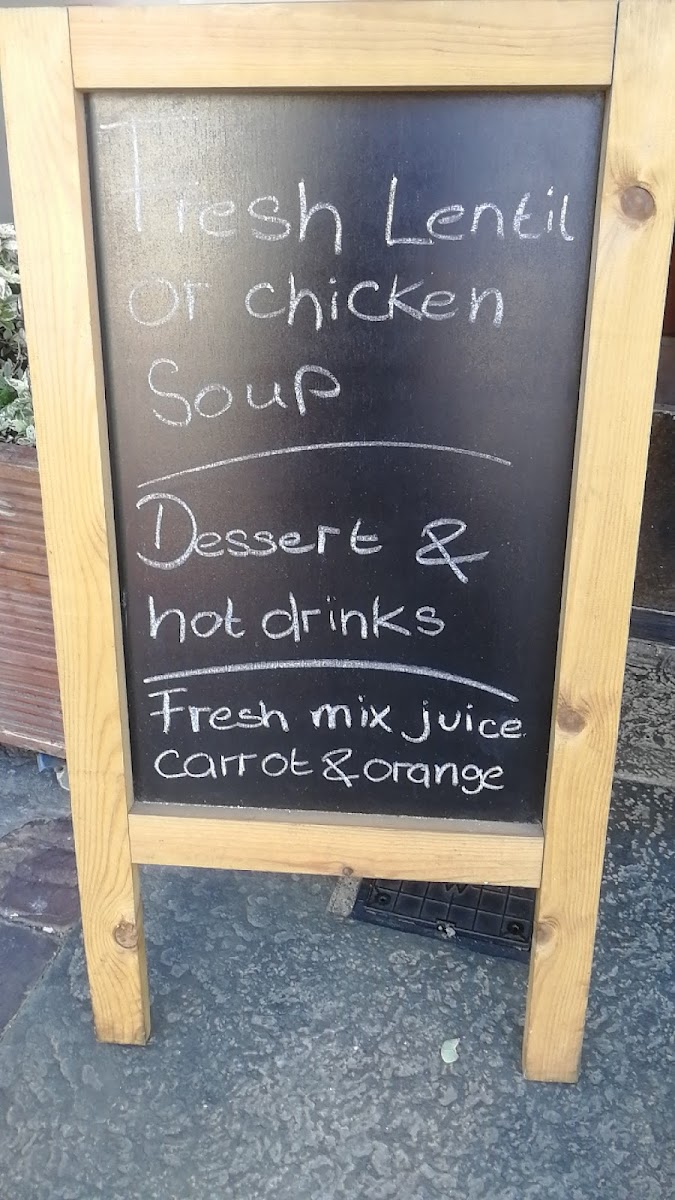 Fresh Lentil
or chicken
Soup
Dessert &
hot drinks
Fresh mix juice
carrot & orange
W